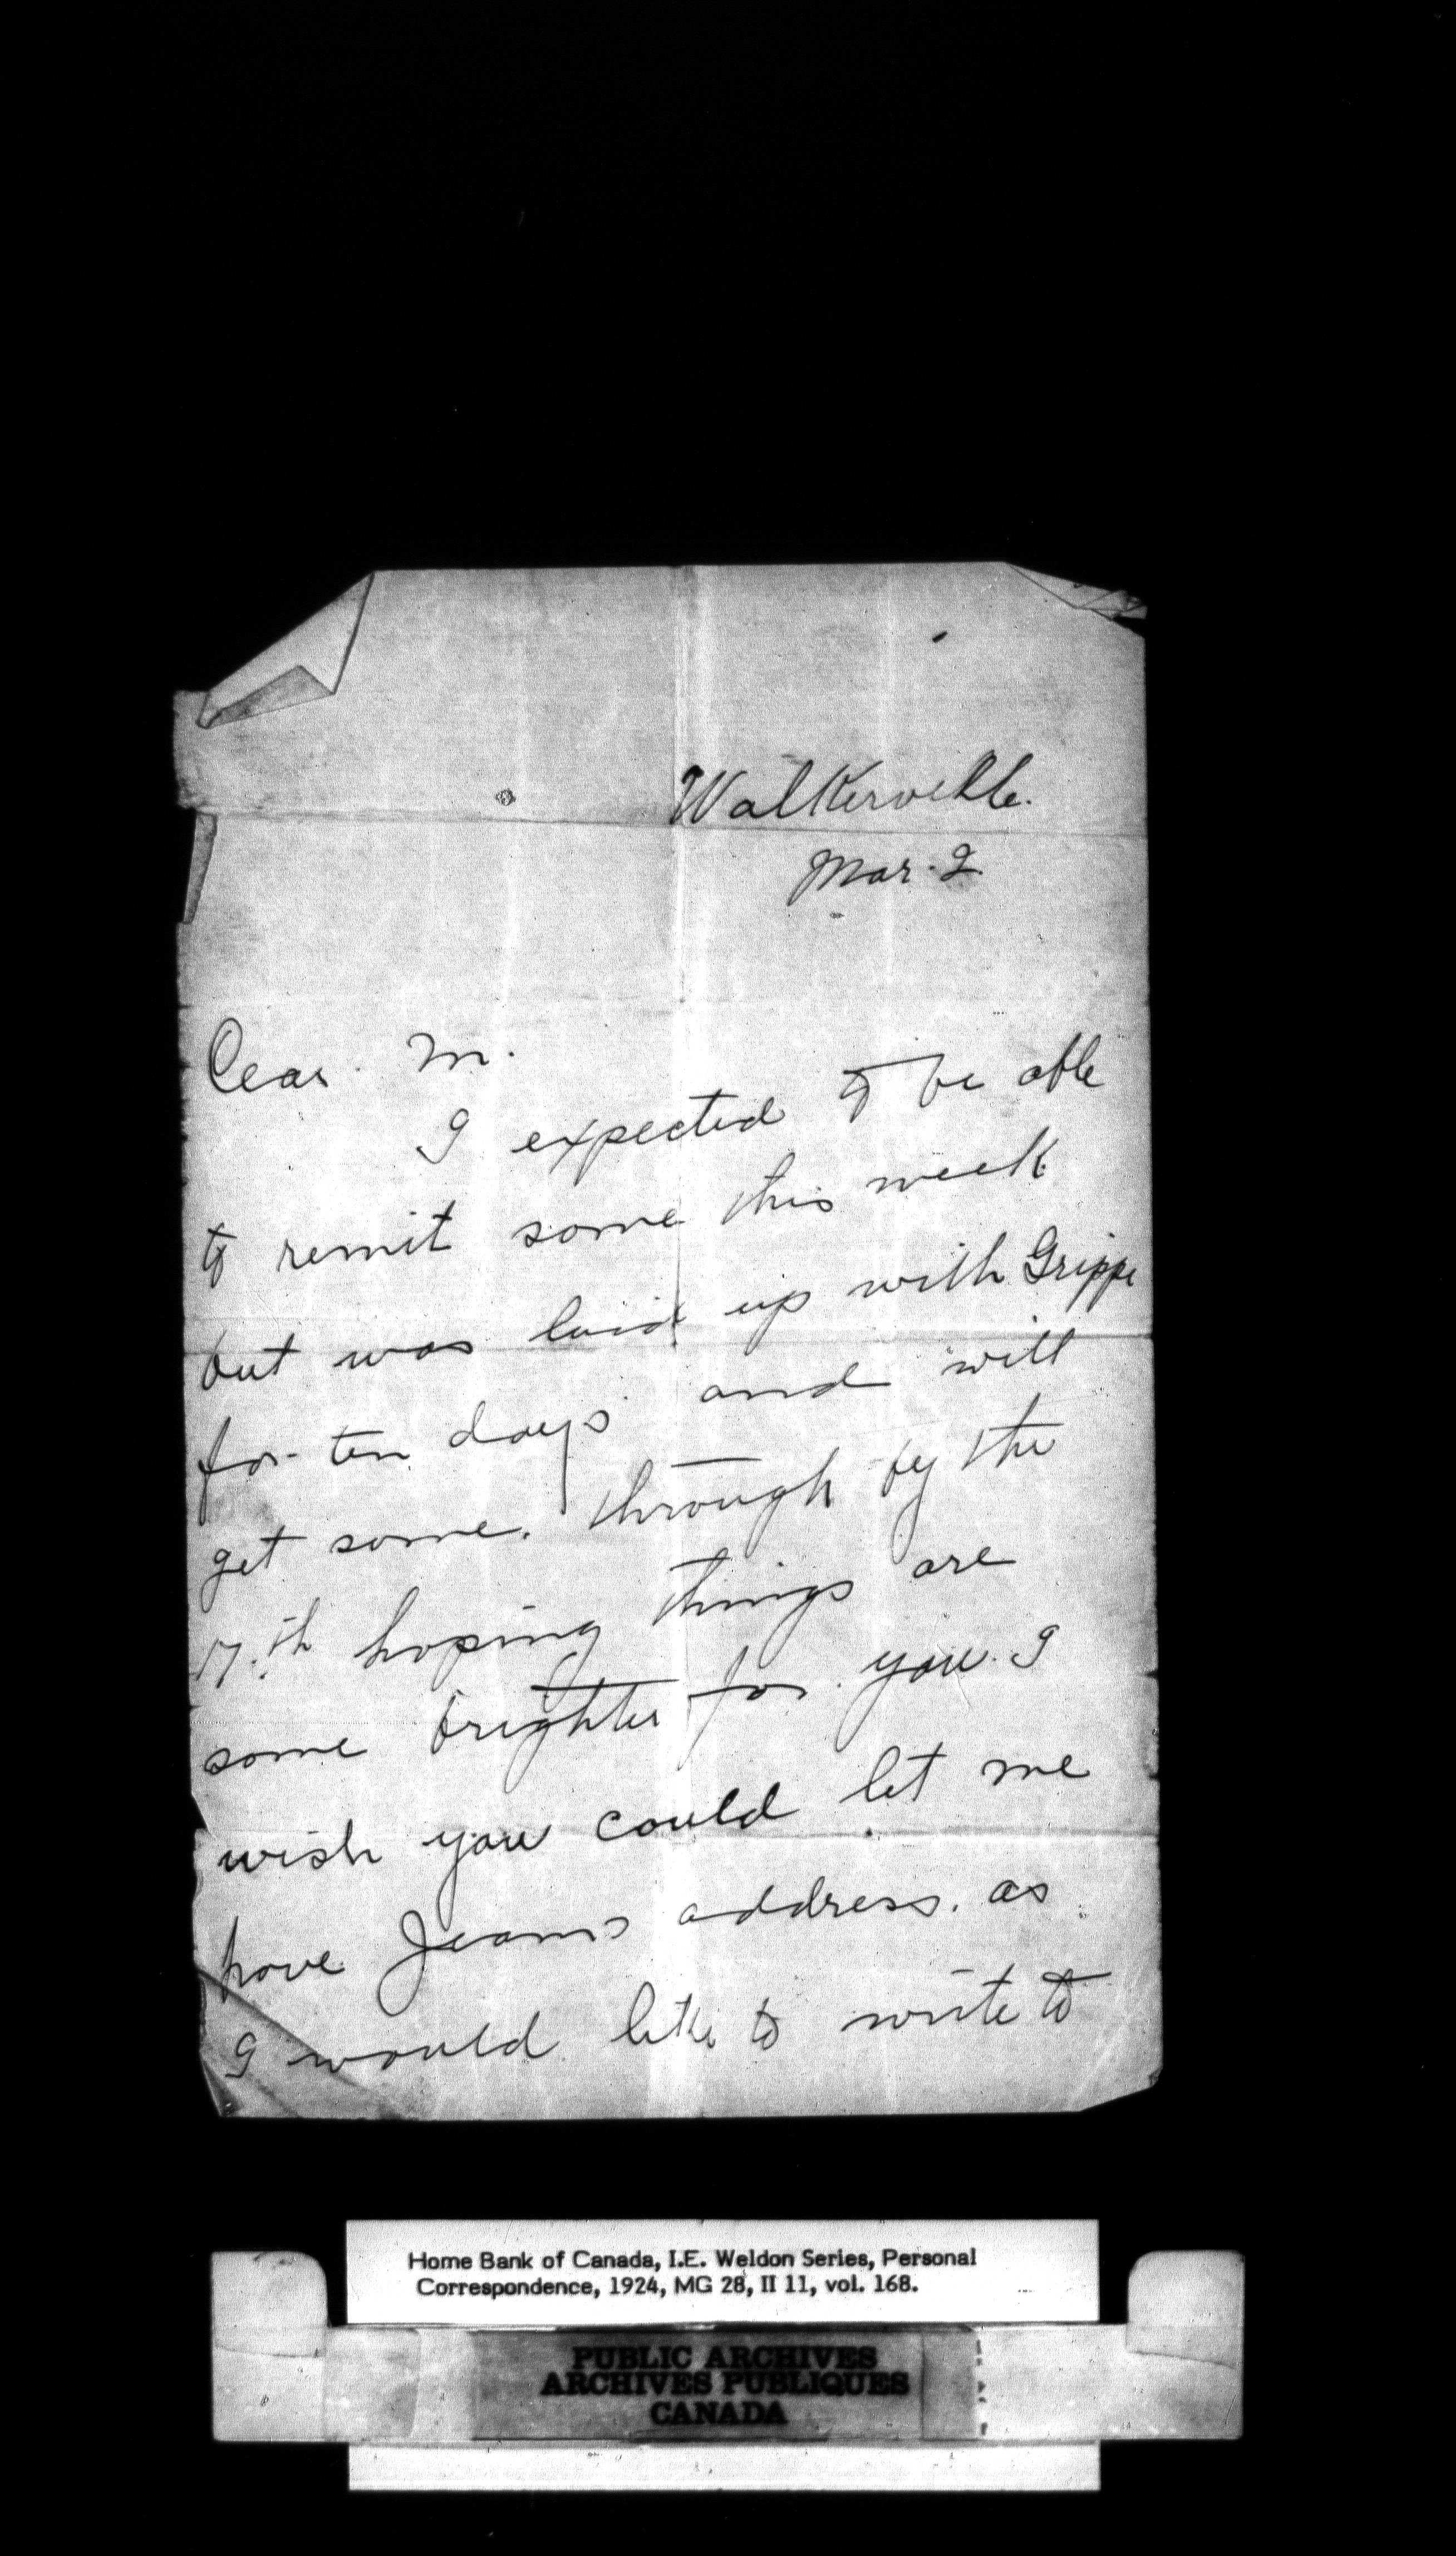 Walkerville.
Mar. 2
Dear M.
I expected to be able
to remit some this week
but was laid up with Grippe
for ten days and will
get some through by the
17th hoping things are
some brighter for you. I
wish you could let me
have Jeans address. as
I would like to write to
Home Bank of Canada, I.E. Weldon Series, Personal
Correspondence, 1924, MG 28, II 11, vol. 168.
PUBLIC ARCHIVES
ARCHIVES PUBLIQUES
CANADA